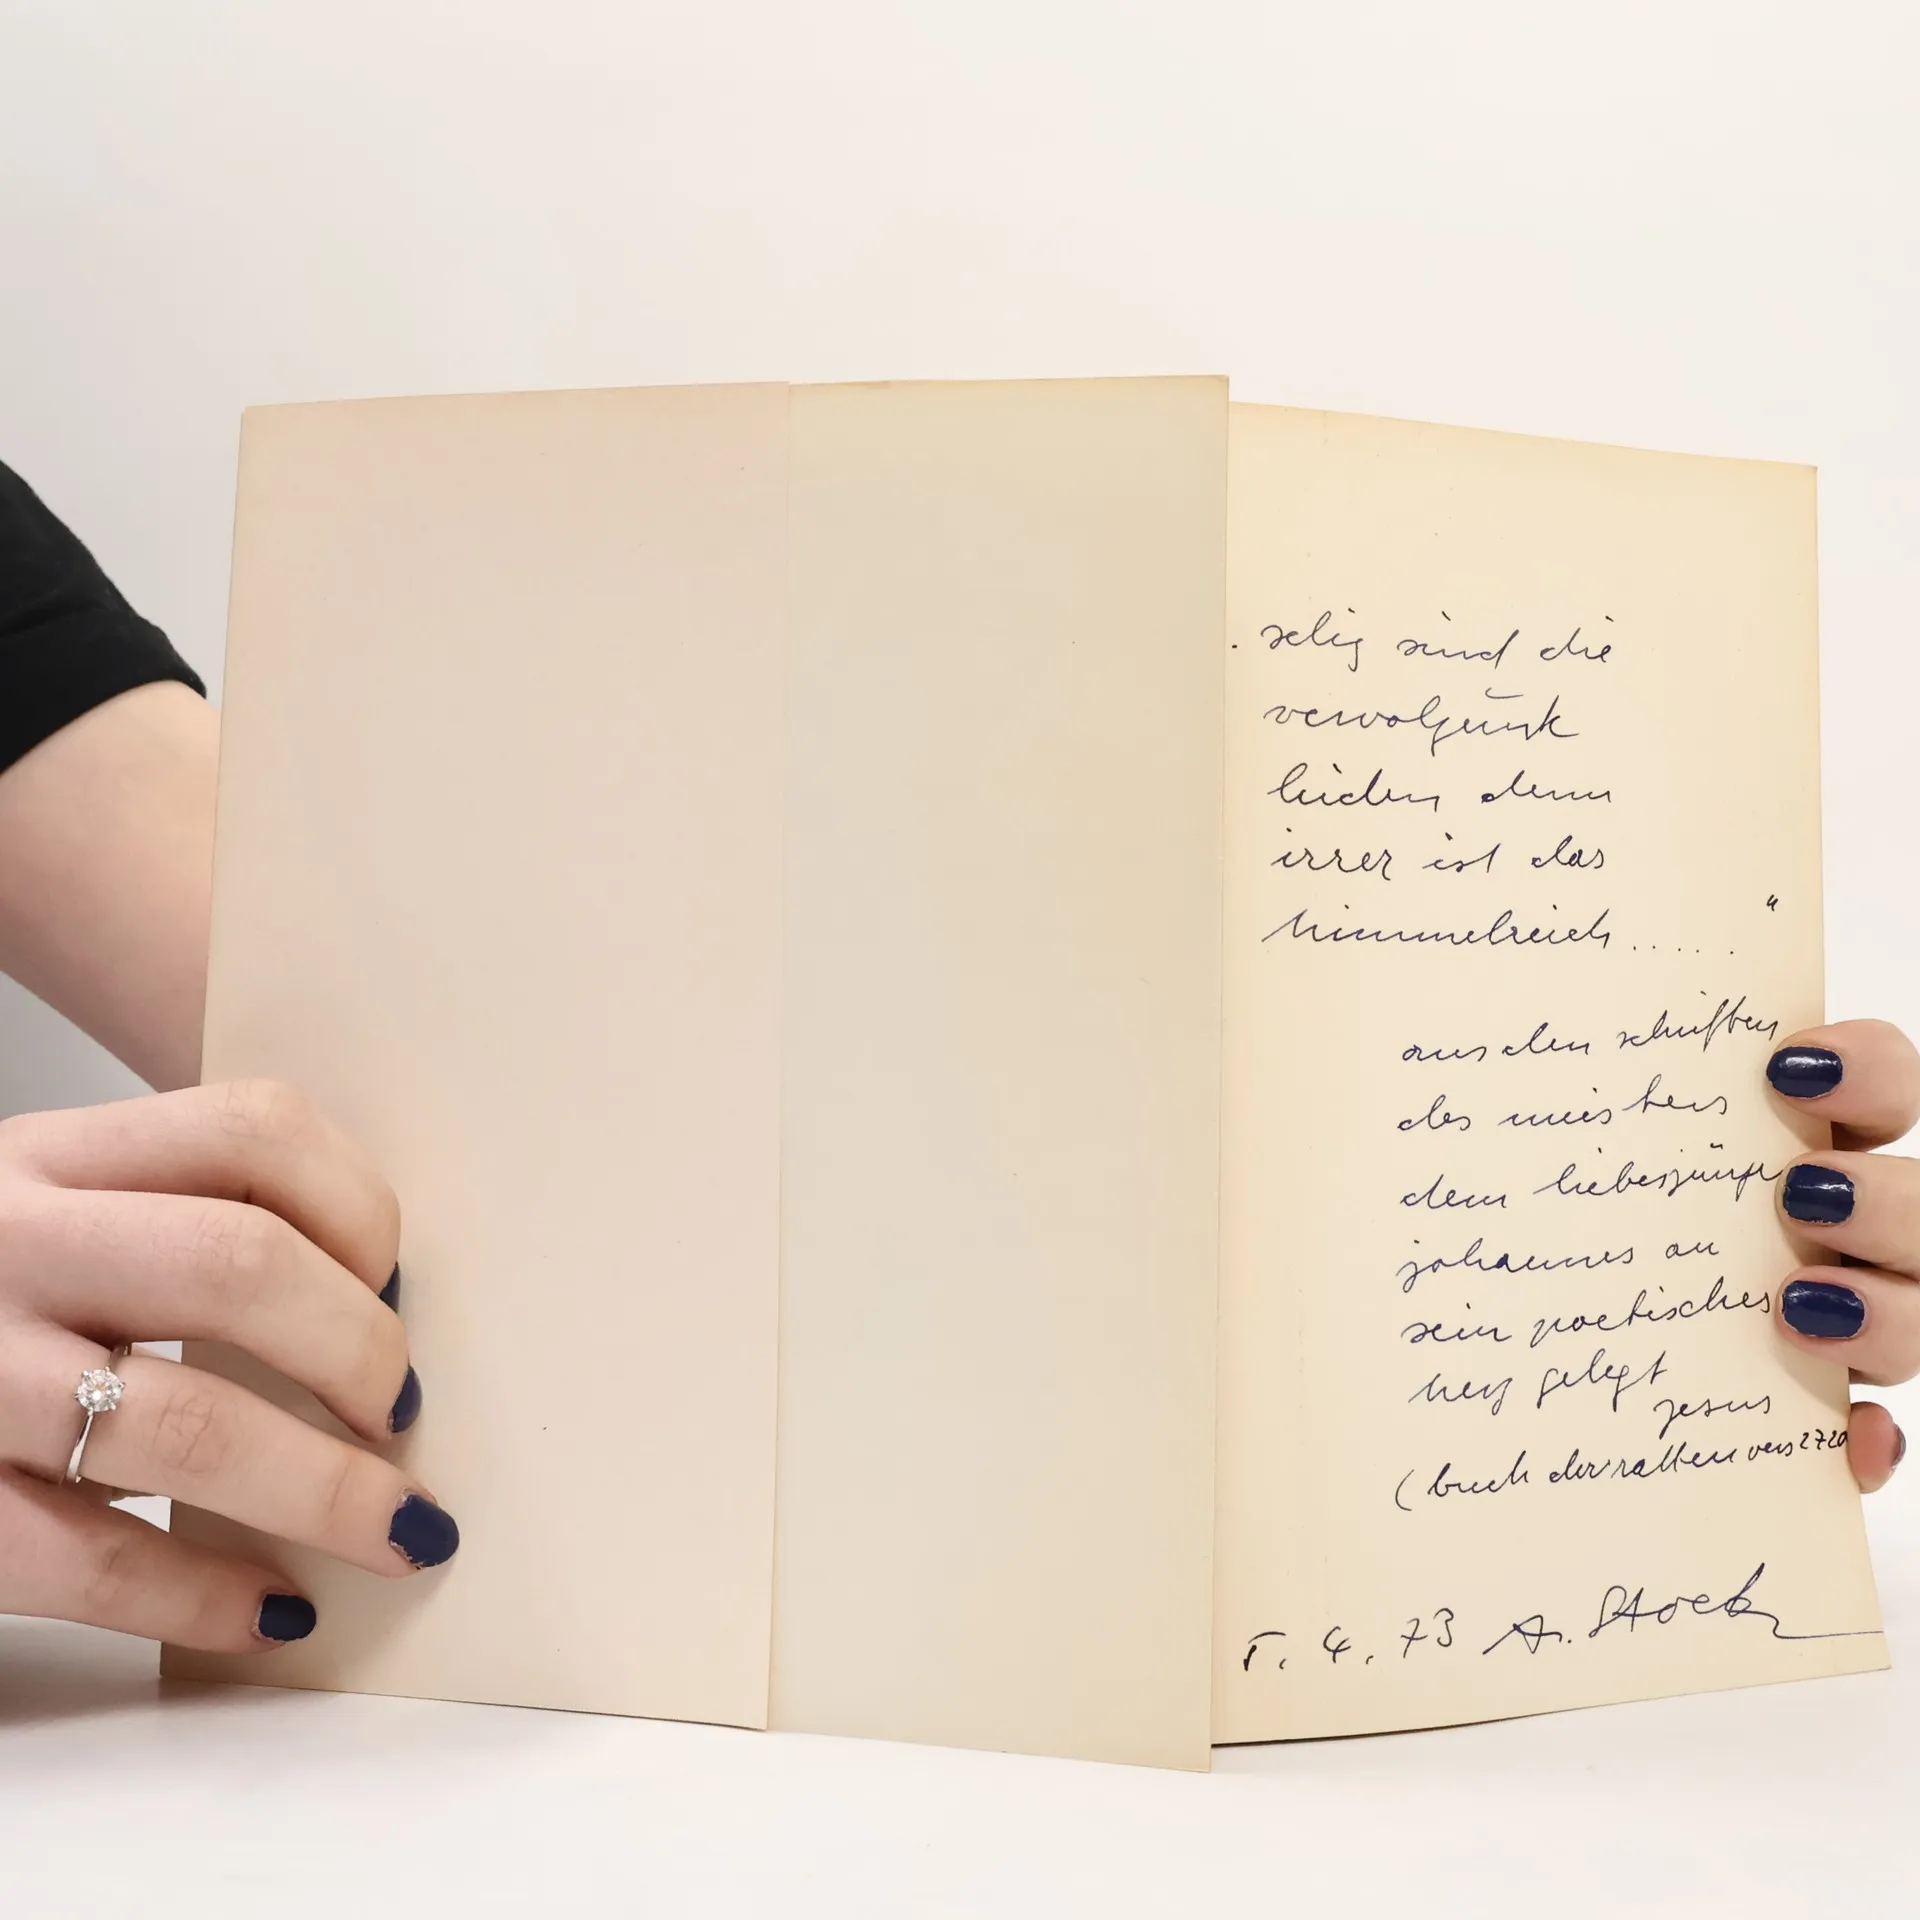 . selig sind die
vervolgunk
leiden denn
irrer ist das
himmelreich ..... "
aus den schriften
des meisters
dem
johannes an
sein poetisches
herz gelegt
jesus
(buch der ratten vers 2720
5. 4. 73 A. Stock